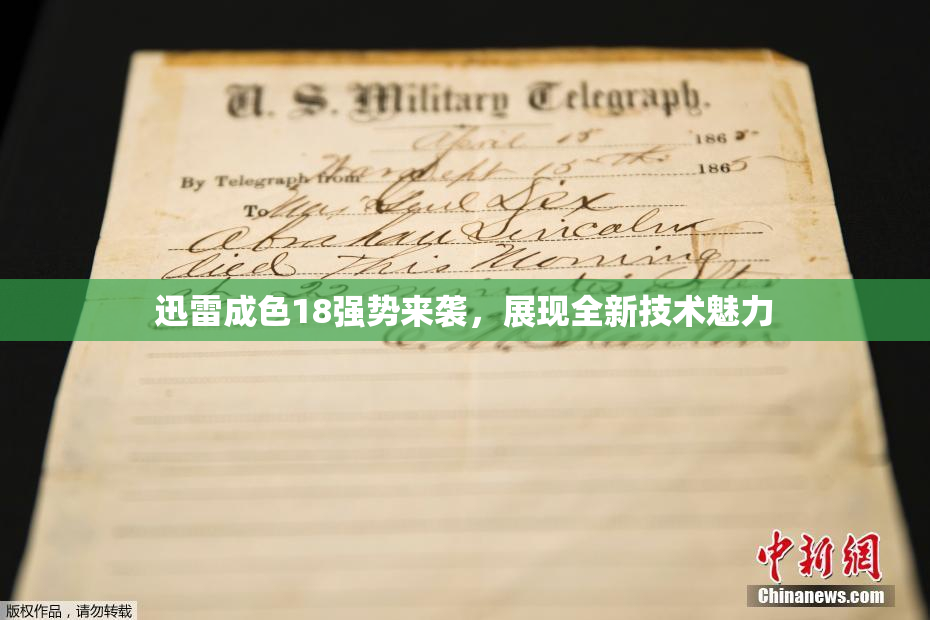 U. S. Military Telegraph.
April 15 1865
By Telegraph from War Dept 15th 1865
To Maj Genl Dix
Abraham Lincoln
died This Morning
at 22 minutes after
迅雷成色18强势来袭，展现全新技术魅力
中新网
Chinanews.com
版权作品，请勿转载